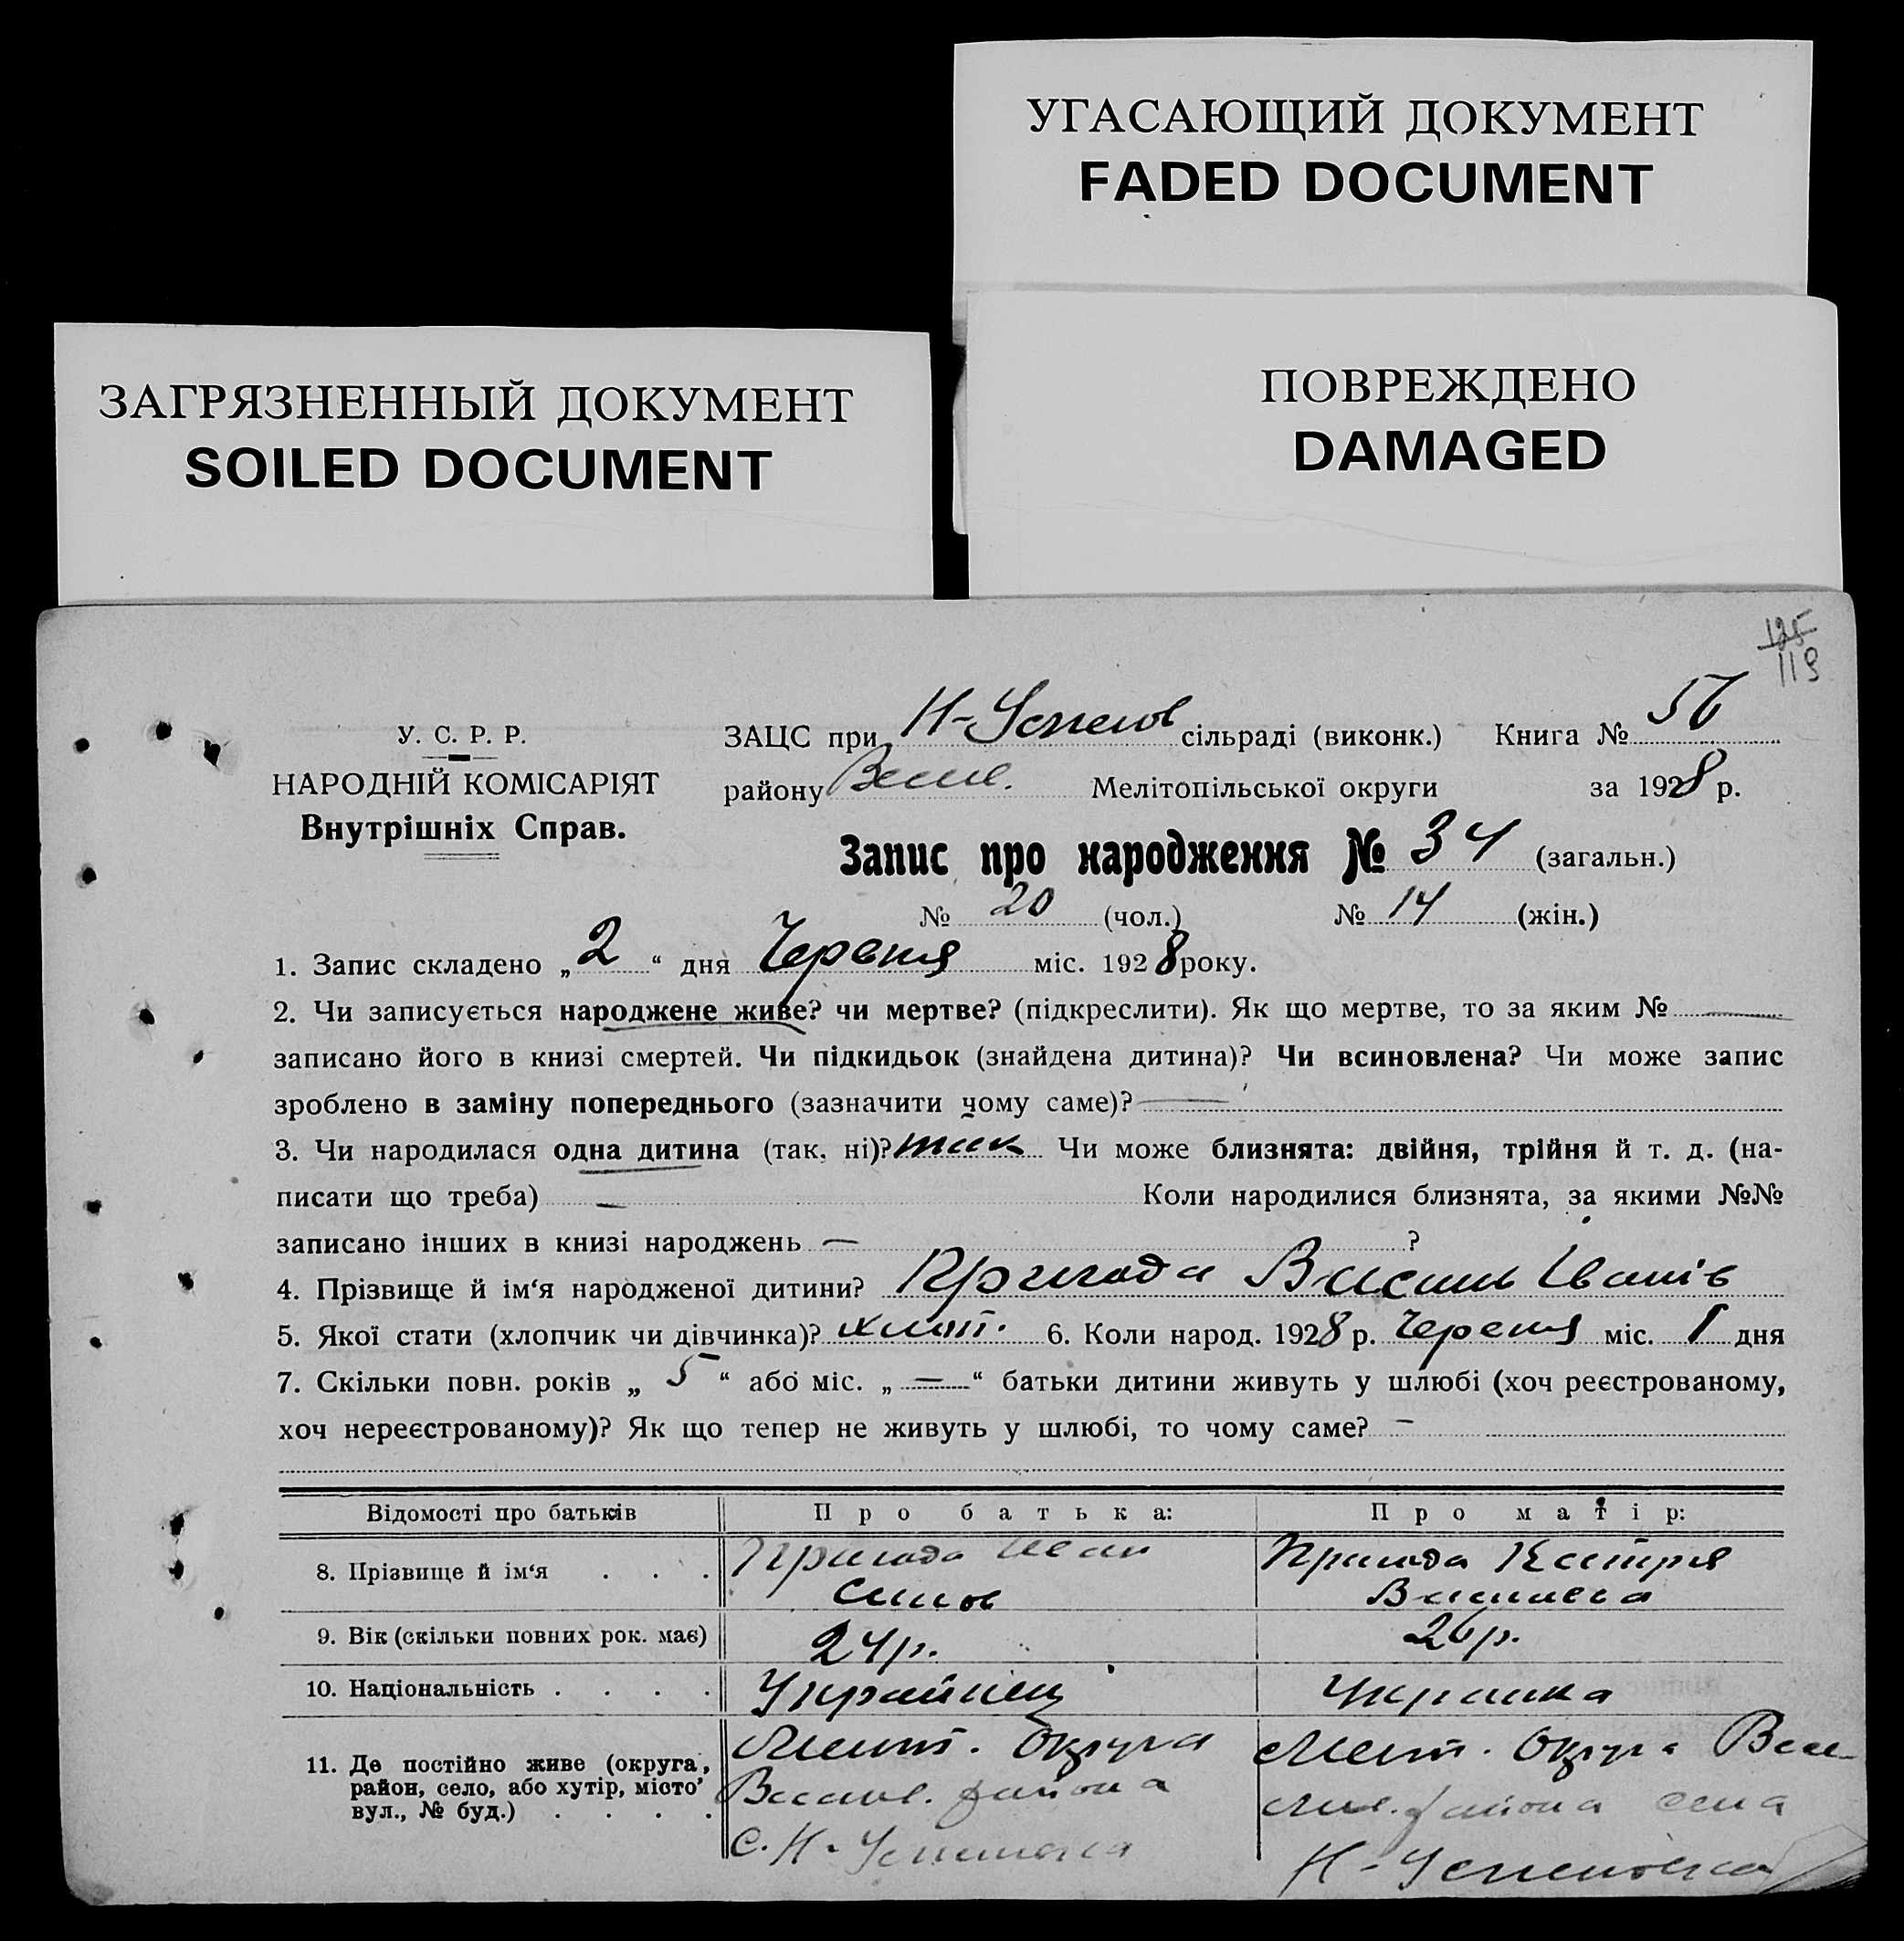 УГАСАЮЩИЙ ДОКУМЕНТ
FADED DOCUMENT
ПОВРЕЖДЕНО
DAMAGED
ЗАГРЯЗНЕННЫЙ ДОКУМЕНТ
SOILED DOCUMENT
125
119
У. С. Р. Р.
НАРОДНІЙ КОМІСАРІЯТ
Внутрішніх Справ.
ЗАЦС при Н-Успенов сільраді (виконк.) Книга № 56
району Весел. Мелітопільської округи за 1928 р.
Запис про народження № 34 (загальн.)
№ 20 (чол.) № 14 (жін.)
1. Запис складено „2“ дня Червня міс. 1928 року.
2. Чи записується народжене живе? чи мертве? (підкреслити). Як що мертве, то за яким №
записано його в книзі смертей. Чи підкидьок (знайдена дитина)? Чи всиновлена? Чи може запис
зроблено в заміну попереднього (зазначити чому саме)? —
3. Чи народилася одна дитина (так, ні)? так Чи може близнята: двійня, трійня й т. д. (на-
писати що треба) — Коли народилися близнята, за якими №№
записано інших в книзі народжень — ?
4. Прізвище й ім‘я народженої дитини? Пригода Василь Іванів
5. Якої стати (хлопчик чи дівчинка)? хлоп. 6. Коли народ. 1928 р. Червня міс. 1 дня
7. Скільки повн. років „5“ або міс. „—“ батьки дитини живуть у шлюбі (хоч реєстрованому,
хоч нереєстрованому)? Як що тепер не живуть у шлюбі, то чому саме? —
Відомості про батьків Про батька: Про матір:
8. Прізвище й ім‘я . . . Пригода Іван Пригода Катря
Василева
9. Вік (скільки повних рок. має) 24р. 26р.
10. Національність . . . . Українец Украинка
11. Де постійно живе (округа, Меліт. Округа Меліт. Округа
район, село, або хутір, місто’ района района села
вул., № буд.) . . . . С. Н-Успеновка Н-Успеновка